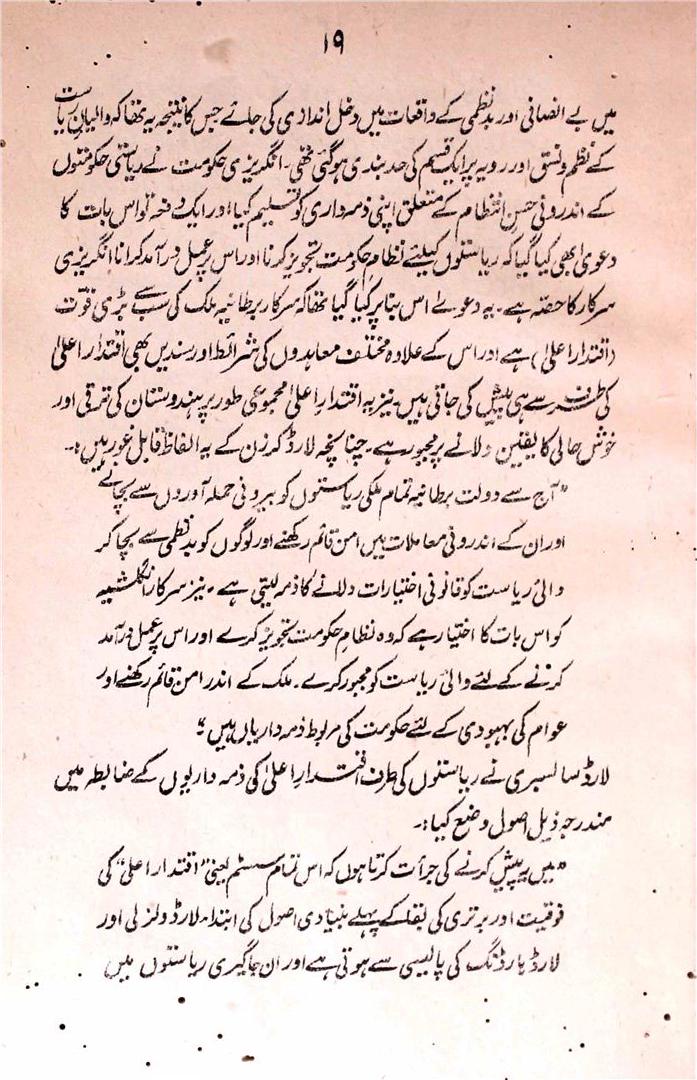 ۱۹
میں بے انصافی اور بدنظمی کے واقعات میں دخل اندازی کی جائے جس کا نتیجہ یہ تھا کہ والیان ریاست
کے نظم و نسق اور رویہ پر ایک قسم کی حد بندی ہو گئی تھی۔ انگریزی حکومت نے ریاستی حکومتوں
کے اندرونی حسن انتظام کے متعلق اپنی ذمہ داری کو تسلیم کیا اور ایک دفعہ تو اس بات کا
دعویٰ بھی کیا گیا کہ ریاستوں کیلئے نظام حکومت تجویز کرنا اور اس پر عمل درآمد کرانا انگریزی
سرکار کا حصہ ہے۔ یہ دعویٰ اس بنا پر کیا گیا تھا کہ سرکار برطانیہ ملک کی سب سے بڑی قوت
(اقتدار اعلیٰ) ہے اور اس کے علاوہ مختلف معاہدوں کی شرائط اور سندیں بھی اقتدار اعلیٰ
کی طرف سے ہی پیش کی جاتی ہیں۔ نیز یہ اقتدار اعلیٰ مجموعی طور پر ہندوستان کی ترقی اور
خوش حالی کا یقین دلانے پر مجبور ہے۔ چنانچہ لارڈ کرزن کے یہ الفاظ قابل غور ہیں:۔
"آج سے دولت برطانیہ تمام ملکی ریاستوں کو بیرونی حملہ آوروں سے بچانے
اور ان کے اندرونی معاملات میں امن قائم رکھنے اور لوگوں کو بدنظمی سے بچا کر
والئ ریاست کو قانونی اختیارات دلانے کا ذمہ لیتی ہے۔ نیز سرکار انگلشیہ
کو اس بات کا اختیار ہے کہ وہ نظام حکومت تجویز کرے اور اس پر عمل درآمد
کرنے کے لئے والئ ریاست کو مجبور کرے۔ ملک کے اندر امن قائم رکھنے اور
عوام کی بہبودی کے لئے حکومت کی مربوط ذمہ داریاں ہیں"
لارڈ سالسبری نے ریاستوں کی طرف اقتدار اعلیٰ کی ذمہ داریوں کے ضابطہ میں
مندرجہ ذیل اصول وضع کیا:۔
"میں یہ پیش کرنے کی جرأت کرتا ہوں کہ اس تمام سسٹم یعنی "اقتدار اعلیٰ" کی
فوقیت اور برتری کی بقا کے پہلے بنیادی اصول کی ابتدا لارڈ ولزلی اور
لارڈ ہارڈنگ کی پالیسی سے ہوتی ہے اور ان جاگیری ریاستوں میں